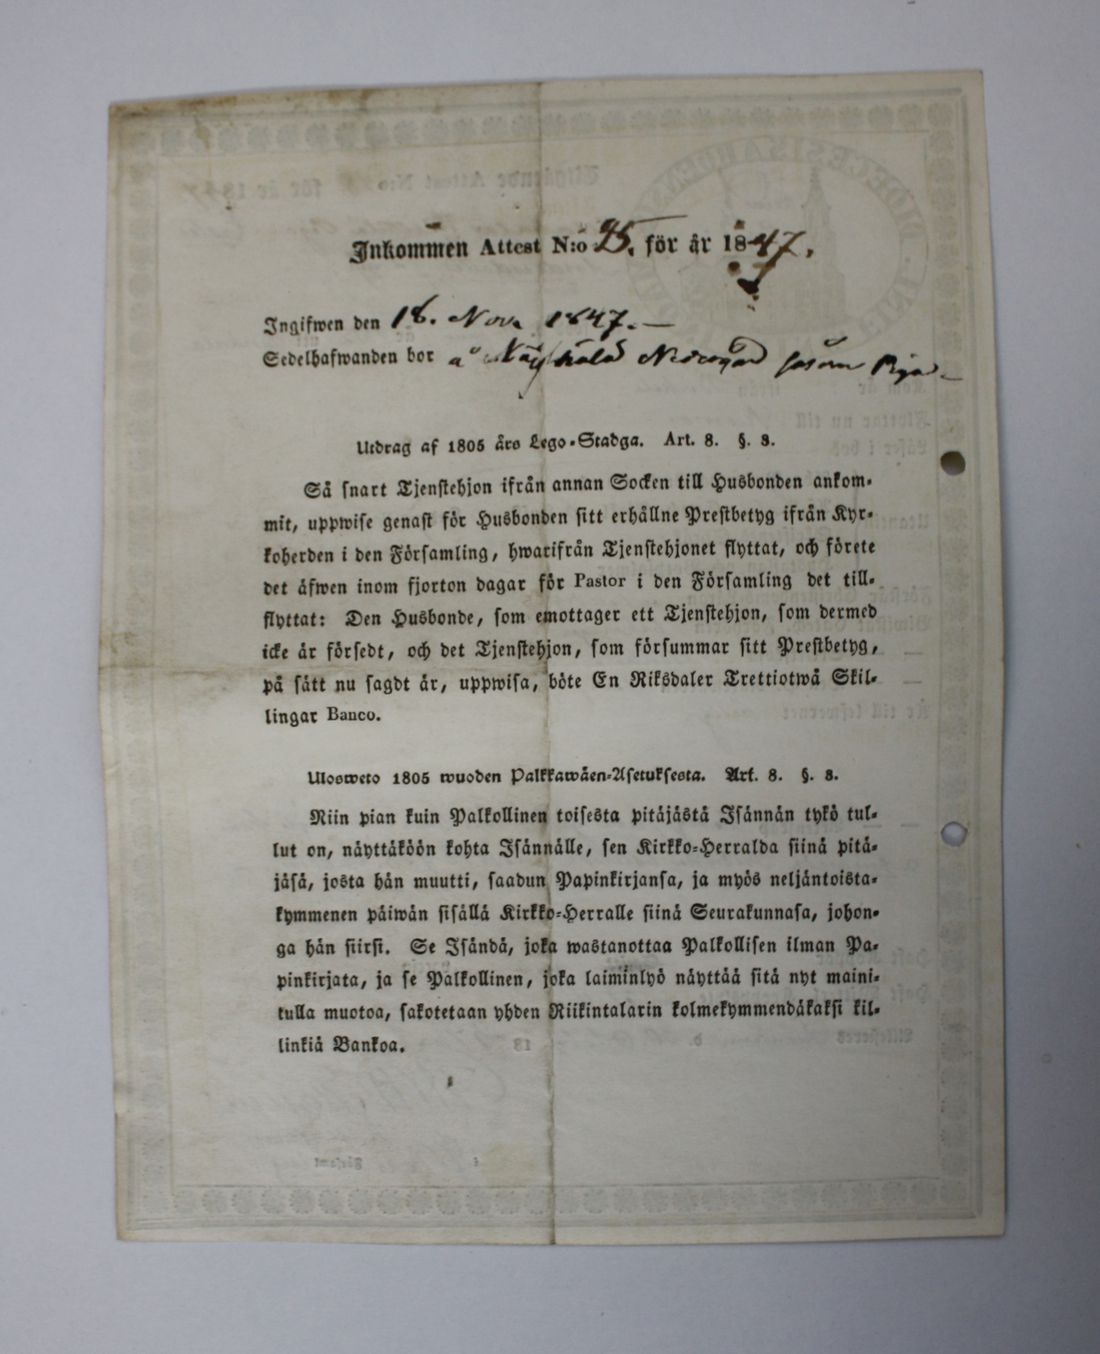 Inkommen Attest N:o 45. för år 1847.
Ingifwen den 18. Nov. 1847. —
Sedelhafwanden bor å Nedergård såsom Piga —
Utdrag af 1805 års Lego-Stadga. Art. 8. §. 3.
Så snart Tjenstehjon ifrån annan Socken till Husbonden ankom-
mit, uppwise genast för Husbonden sitt erhållne Prestbetyg ifrån Kyr-
koherden i den Församling, hwarifrån Tjenstehjonet flyttat, och förete
det äfwen inom fjorton dagar för Pastor i den Församling det till-
flyttat: Den Husbonde, som emottager ett Tjenstehjon, som dermed
icke är försedt, och det Tjenstehjon, som försummar sitt Prestbetyg,
på sätt nu sagdt är, uppwisa, böte En Riksdaler Trettiotwå Skil-
lingar Banco.
Ulosweto 1805 wuoden Palkkawäen-Asetuksesta. Art. 8. §. 3.
Niin pian kuin Palkollinen toisesta pitäjästä Isännän tykö tul-
lut on, näyttäköön kohta Isännälle, sen Kirkko-Herralda siinä pitä-
jäsä, josta hän muutti, saadun Papinkirjansa, ja myös neljäntoista-
kymmenen päiwän sisällä Kirkko-Herralle siinä Seurakunnasa, johon-
ga hän siirsi. Se Isändä, joka wastanottaa Palkollisen ilman Pa-
pinkirjata, ja se Palkollinen, joka laiminlyö näyttää sitä nyt maini-
tulla muotoa, sakotetaan yhden Riikintalarin kolmekymmendäkaksi kil-
linkiä Bankoa.